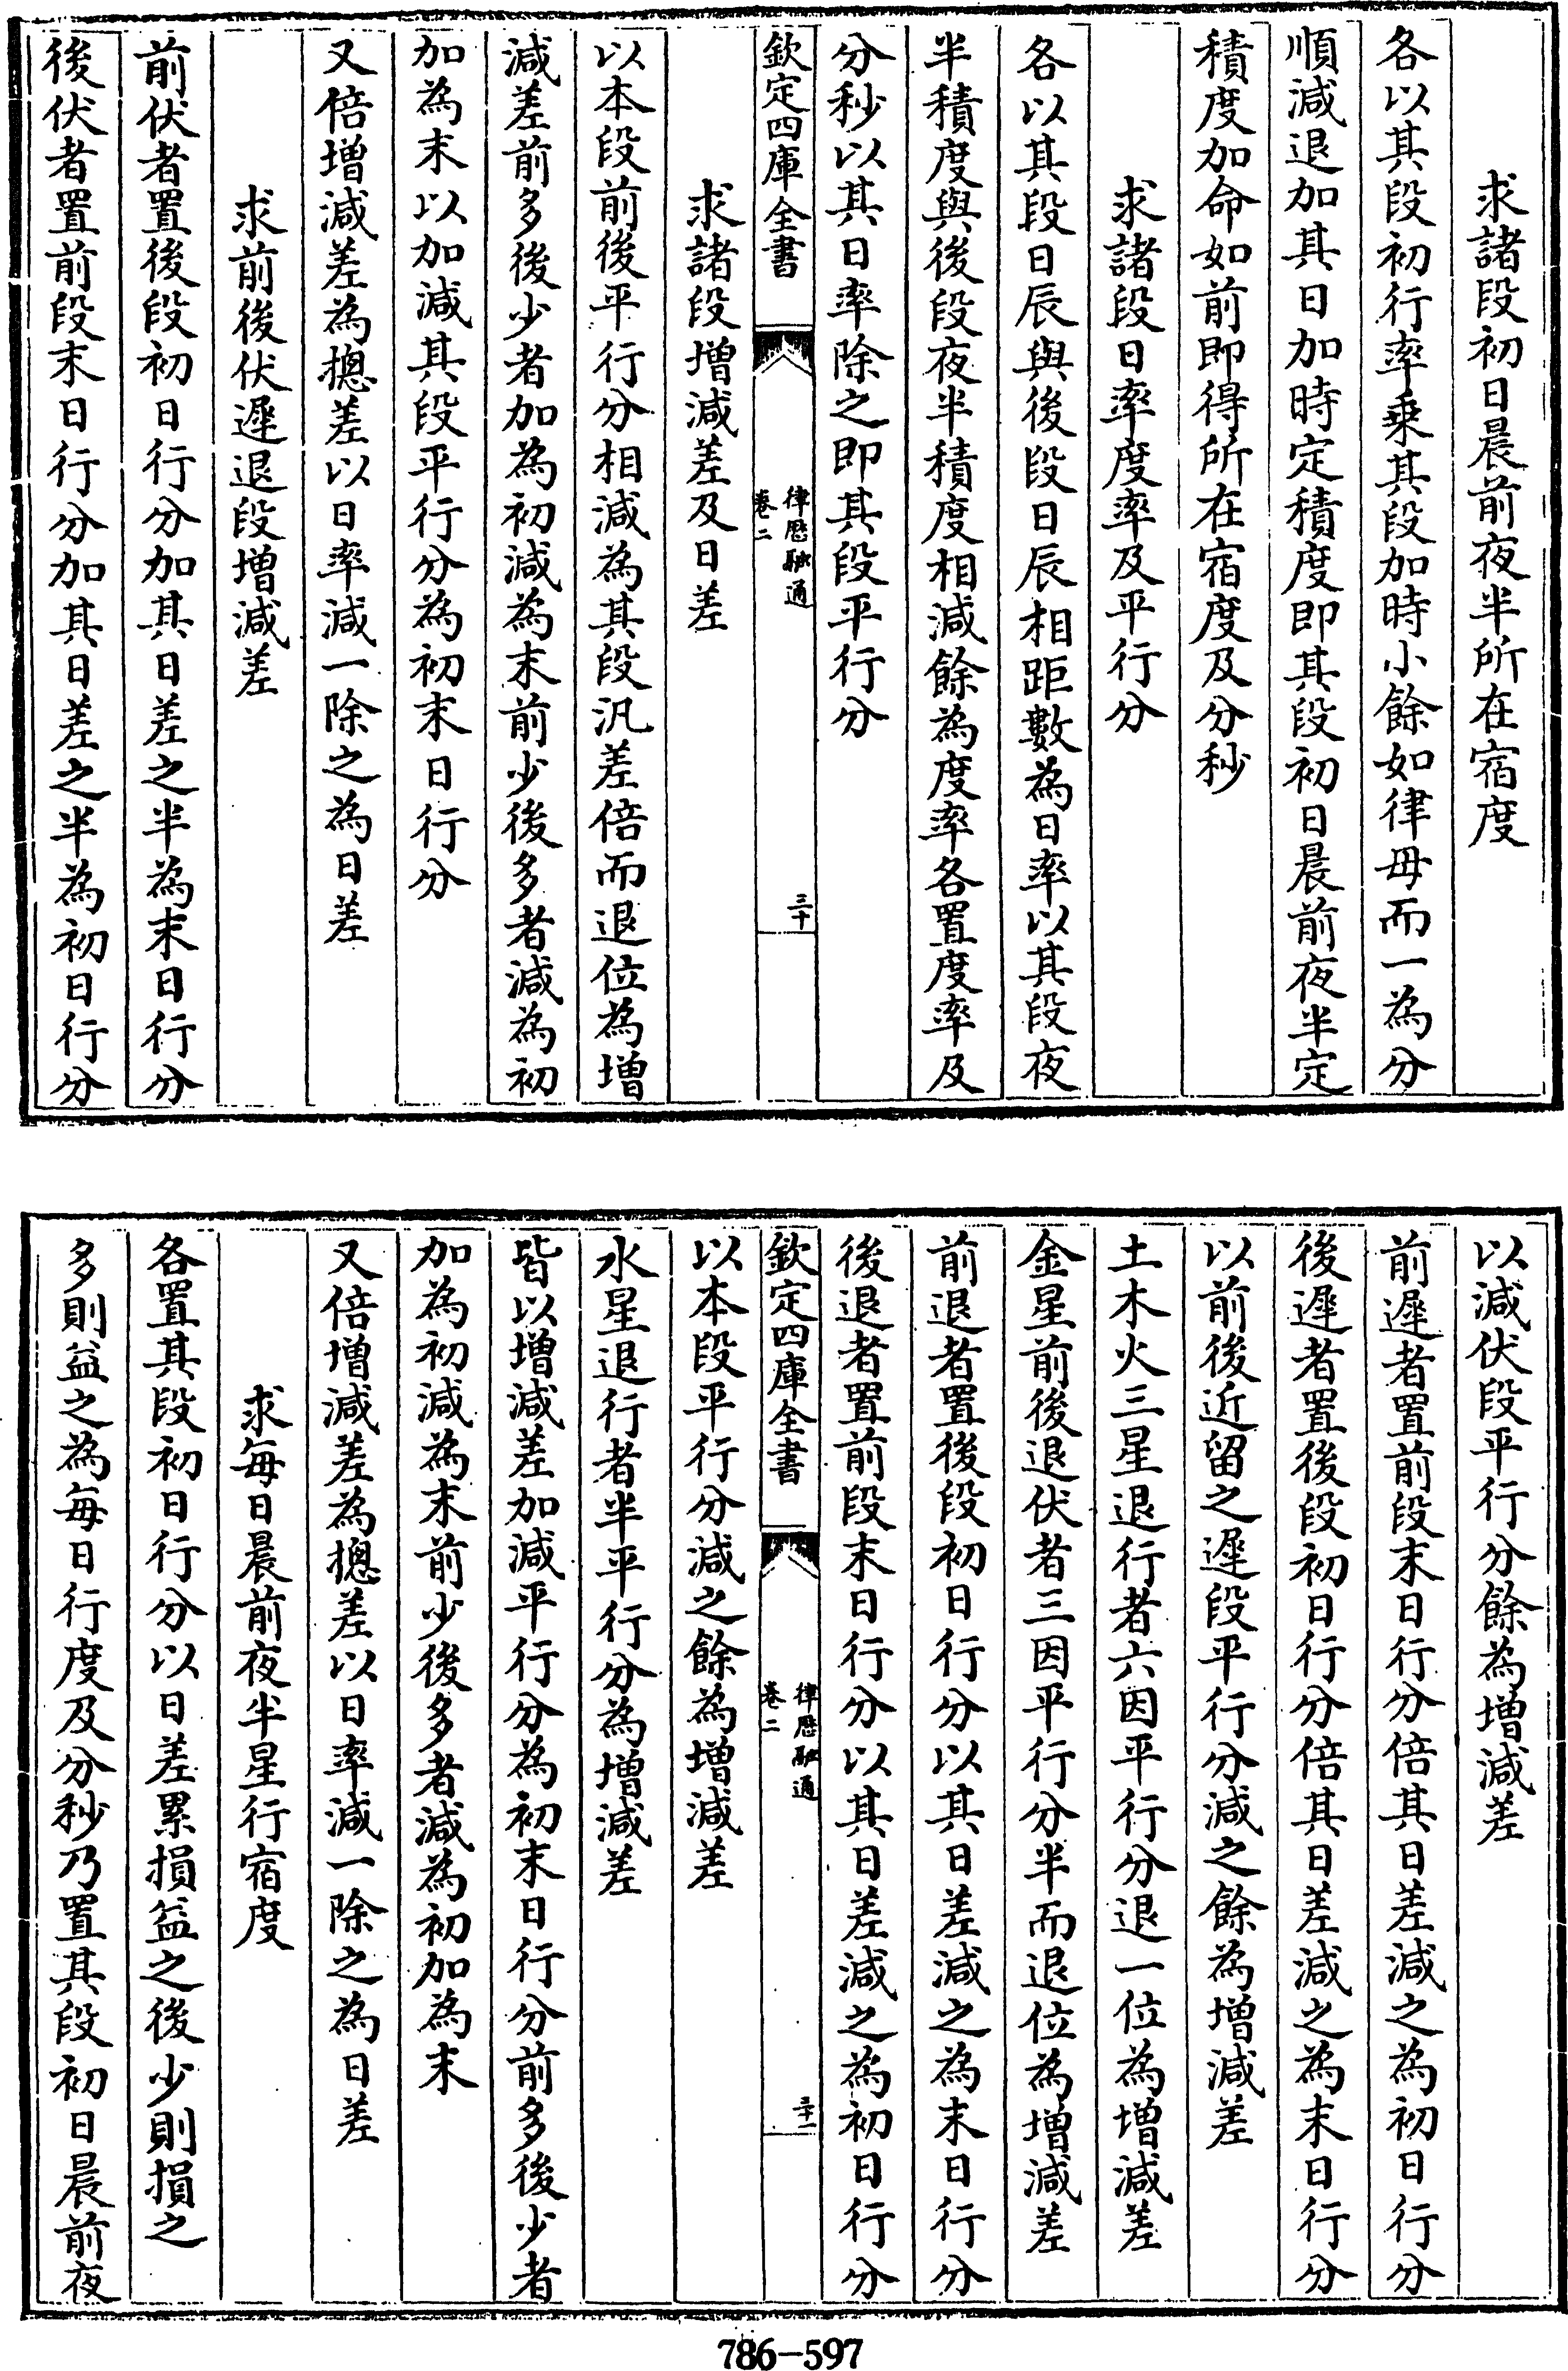 求諸段初日晨前夜半所在宿度
各以其段初行率乗其段加時小餘如律母而一為分
順減退加其日加時定積度即其段初日晨前夜半定
積度加命如前即得所在宿度及分秒
求諸段日率度率及平行分
各以其段日辰與後段日辰相距數為日率以其段夜
半積度與後段夜半積度相減餘為度率各置度率及
分秒以其日率除之即其段平行分
欽定四庫全書
律厯融通
卷二
三十
求諸段増減差及日差
以本段前後平行分相減為其段汎差倍而退位為増
減差前多後少者加為初減為末前少後多者減為初
加為末以加減其段平行分為初末日行分
又倍増減差為摠差以日率減一除之為日差
求前後伏遲退段増減差
前伏者置後段初日行分加其日差之半為末日行分
後伏者置前段末日行分加其日差之半為初日行分
以減伏段平行分餘為増減差
前遲者置前段末日行分倍其日差減之為初日行分
後遲者置後段初日行分倍其日差減之為末日行分
以前後近留之遲段平行分減之餘為増減差
土木火三星退行者六因平行分退一位為増減差
金星前後退伏者三因平行分半而退位為増減差
前退者置後段初日行分以其日差減之為末日行分
後退者置前段末日行分以其日差減之為初日行分
欽定四庫全書
律厯融通
卷二
三十一
以本段平行分減之餘為増減差
水星退行者半平行分為増減差
皆以増減差加減平行分為初末日行分前多後少者
加為初減為末前少後多者減為初加為末
又倍増減差為摠差以日率減一除之為日差
求每日晨前夜半星行宿度
各置其段初日行分以日差累損益之後少則損之
多則益之為每日行度及分秒乃置其段初日晨前夜
786-597